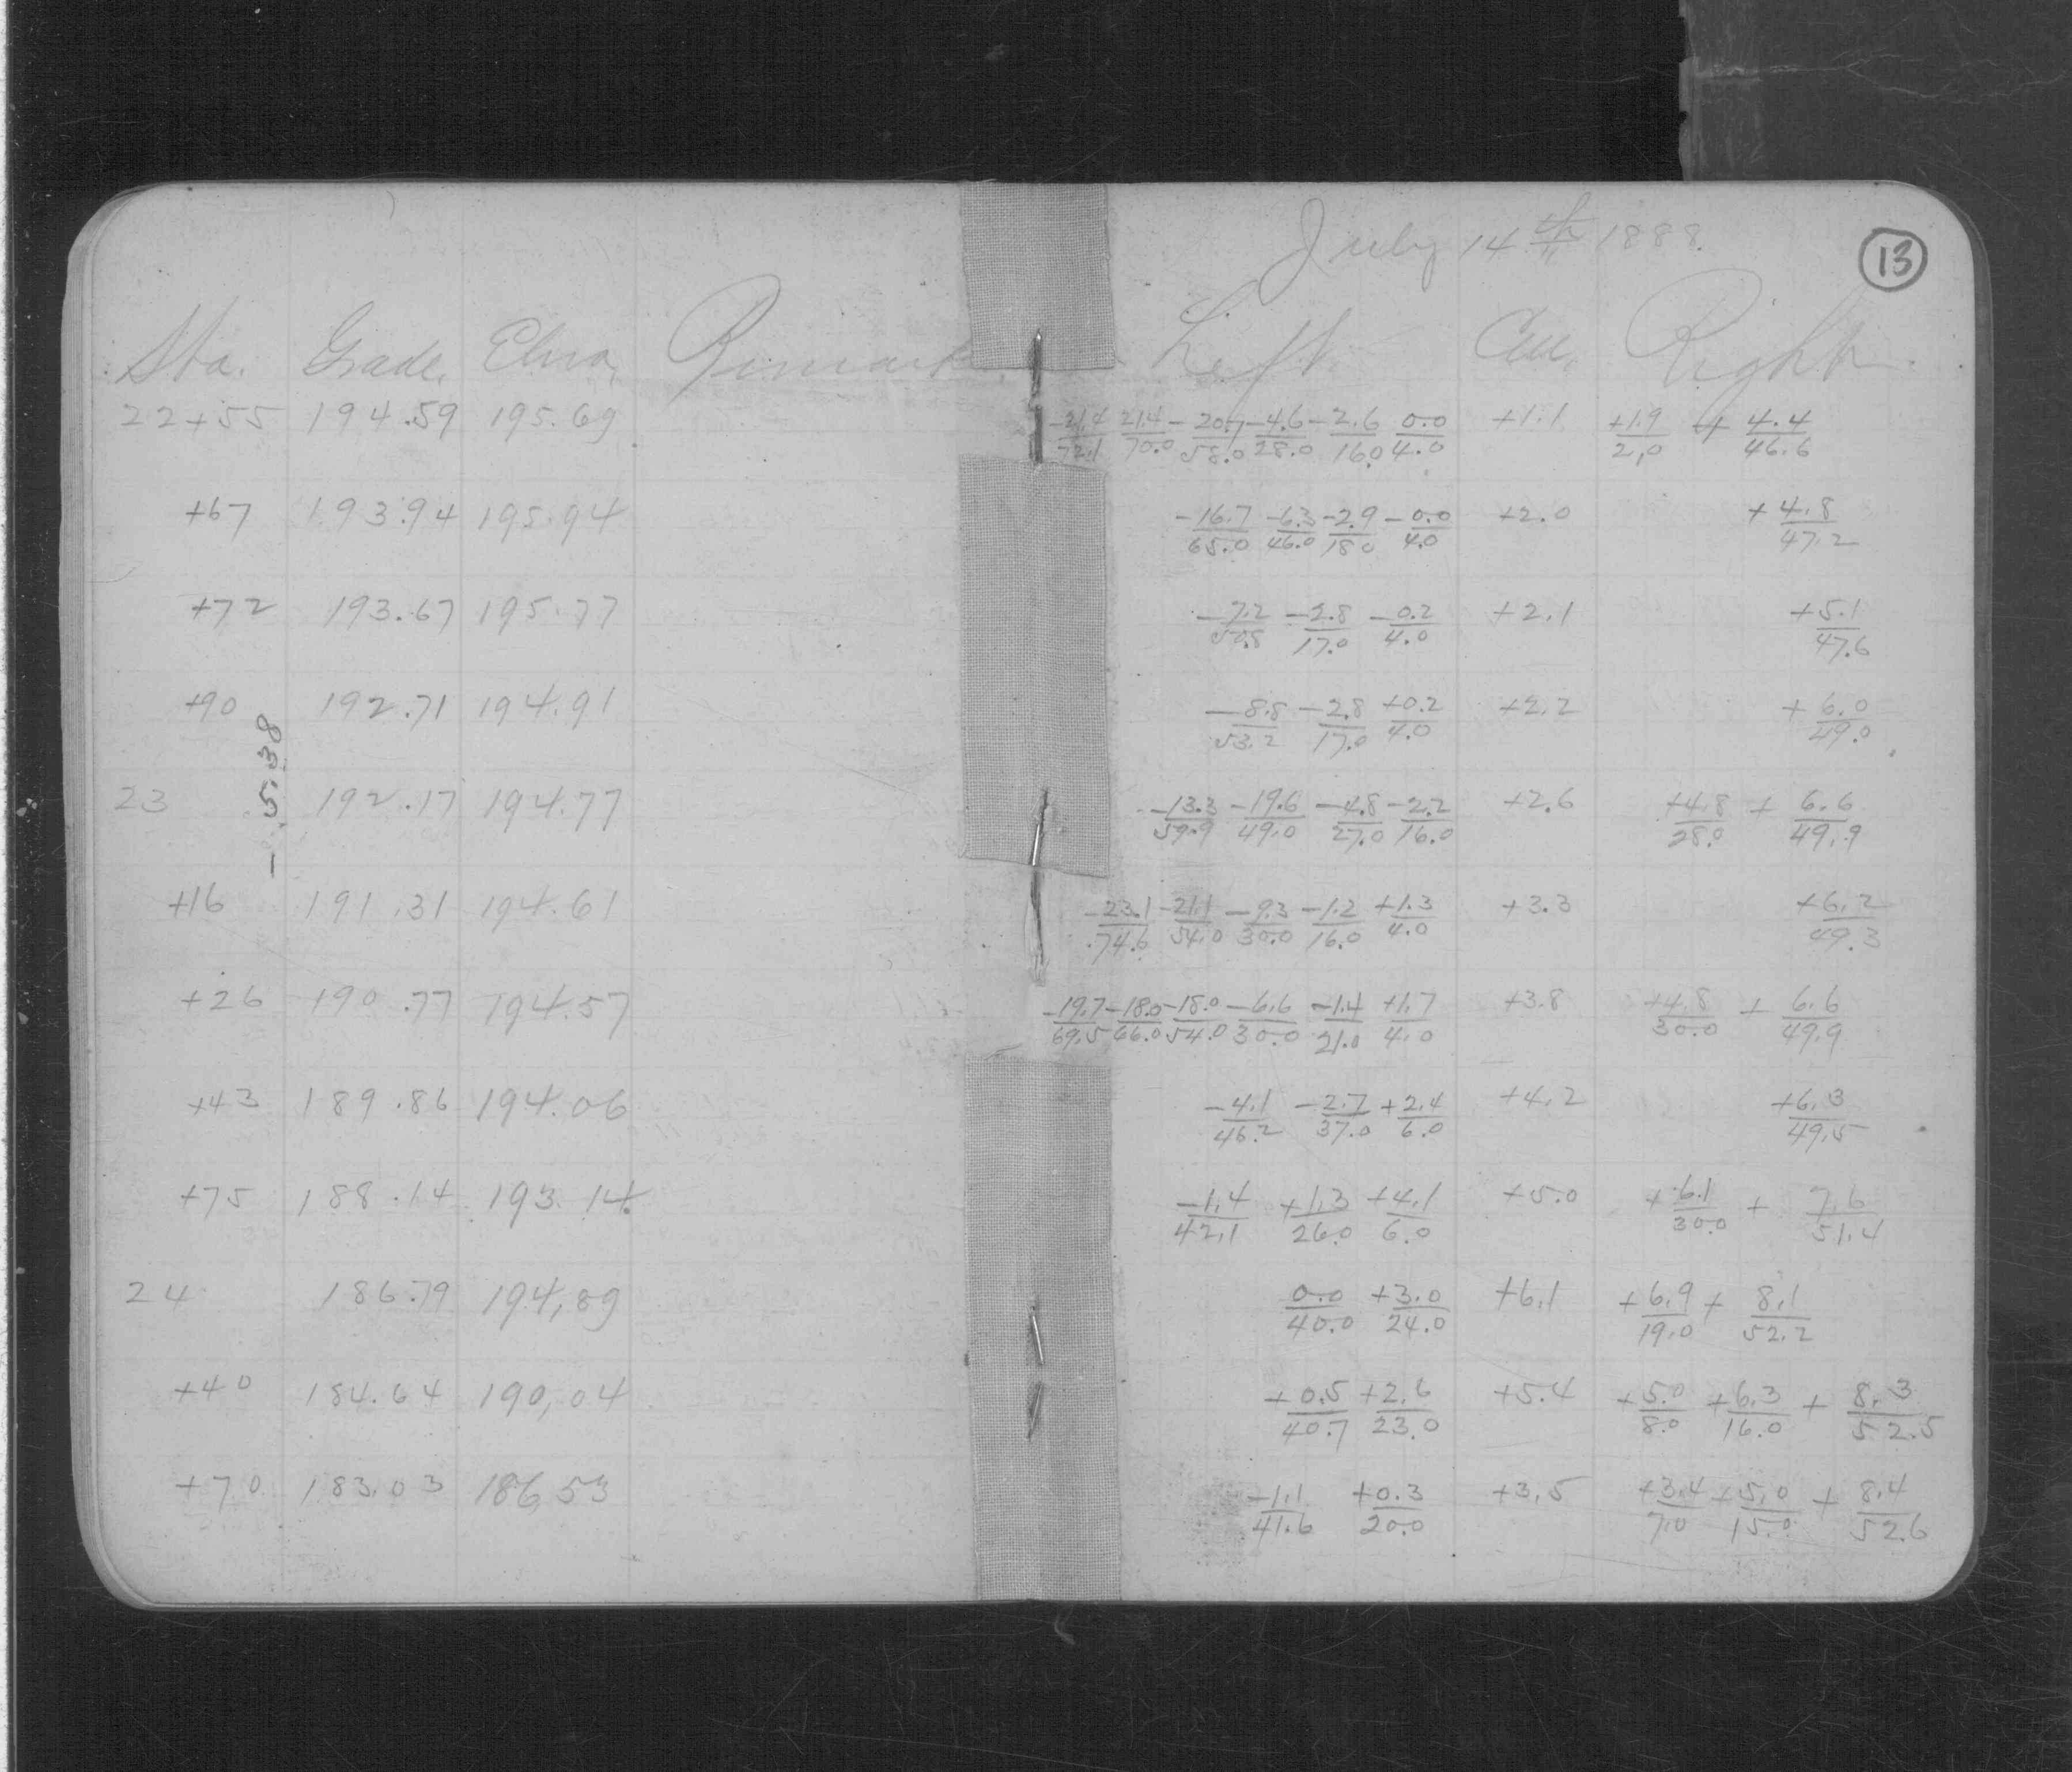 July 14th 1888.
13
Sta. Grade. Eleva. Remark Left. Cen. Right.
22+55 194.59 195.69 -21.4/72.1 21.4/70.0 -20.7/58.0 -4.6/28.0 -2.6/16.0 0.0/4.0 +1.1 +1.9/2.0 + 4.4/46.6
+67 193.94 195.94 -16.7/65.0 -6.3/46.0 -2.9/18.0 -0.0/4.0 +2.0 + 4.8/47.2
+72 193.67 195.77 -7.2/50.8 -2.8/17.0 -0.2/4.0 +2.1 +5.1/47.6
+90 192.71 194.91 -8.8/53.2 -2.8/17.0 +0.2/4.0 +2.2 + 6.0/49.0
-5.38
23 192.17 194.77 -13.3/59.9 -19.6/49.0 -4.8/27.0 -2.2/16.0 +2.6 +4.8/28.0 + 6.6/49.9
+16 191.31 194.61 -23.1/74.6 -21.1/54.0 -9.3/30.0 -1.2/16.0 +1.3/4.0 +3.3 +6.2/49.3
+26 190.77 194.57 -19.7/69.5 -18.0/66.0 -18.0/54.0 -6.6/30.0 -1.4/21.0 +1.7/4.0 +3.8 +4.8/30.0 + 6.6/49.9
+43 189.86 194.06 -4.1/46.2 -2.7/37.0 +2.4/6.0 +4.2 +6.3/49.5
+75 188.14 193.14 -1.4/42.1 +1.3/26.0 +4.1/6.0 +5.0 +6.1/30.0 + 7.6/51.4
24 186.79 194.89 0.0/40.0 +3.0/24.0 +6.1 +6.9/19.0 + 8.1/52.2
+40 184.64 190.04 +0.5/40.7 +2.6/23.0 +5.4 +5.0/8.0 +6.3/16.0 + 8.3/52.5
+70 183.03 186.53 -1.1/41.6 +0.3/20.0 +3.5 +3.4/7.0 +5.0/15.0 + 8.4/52.6